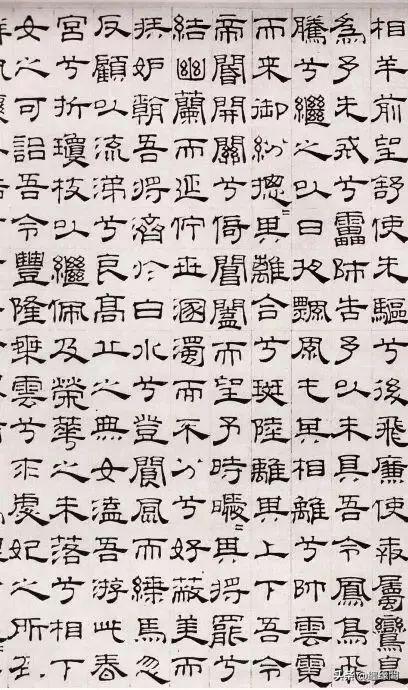 相羊前望舒使先驅兮後飛廉使奔屬鸞皇
為予先戒兮靁師告予以未具吾令鳳鳥飛
騰兮繼之以日夜飄風屯其相離兮帥雲霓
而来御紛總=其離合兮斑陸離其上下吾令
帝閽開關兮倚閶闔而望予時曖=其將罷兮
結幽蘭而延佇世溷濁而不分兮好蔽美而
嫉妒朝吾將濟於白水兮登閬風而緤馬忽
反顧以流涕兮哀高丘之無女溘吾游此春
宮兮折瓊枝以繼佩及榮華之未落兮相下
女之可詒吾令豐隆椉雲兮求虙妃之所在
头条